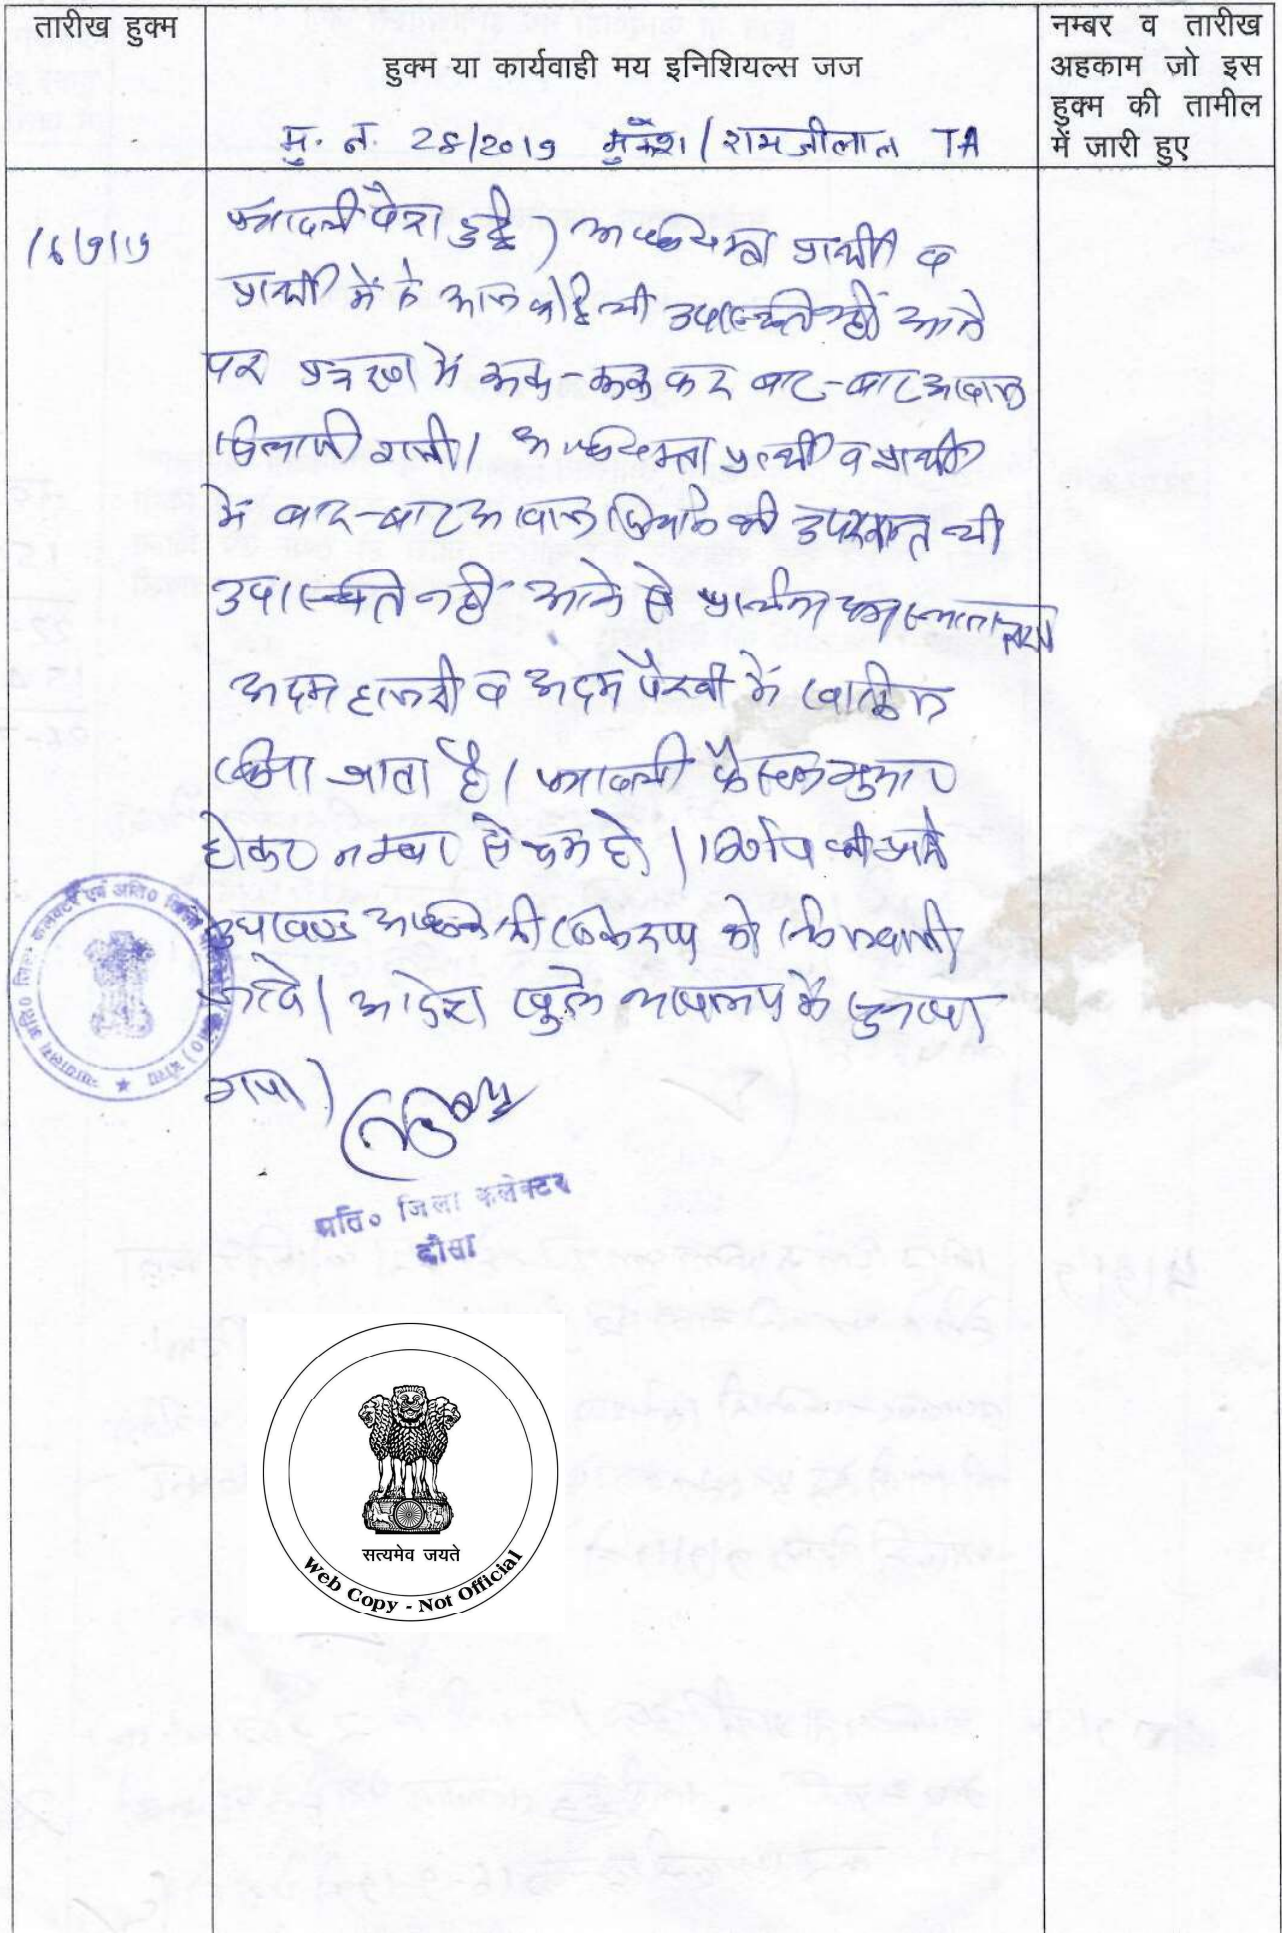 तारीख हुक्म
हुक्म या कार्यवाही मय इनिशियल्स जज
नम्बर व तारीख
अहकाम जो इस
हुक्म की तामील
में जारी हुए
मु. न. 28/2019 मुकेश / रामजीलाल TA
16/9/19
पत्रावली पेश हुई। अधिवक्ता प्रार्थी व
प्रार्थी में से आज कोई भी उपस्थित नहीं आने
पर प्रकरण में रूक-रूक कर बार-बार आवाज
दिलायी गयी। अधिवक्ता प्रार्थी व प्रार्थी
में बार-बार आवाज दिलाने के उपरान्त भी
उपस्थित नहीं आने से प्रार्थना पत्र
अदम हाजरी व अदम पैरवी में खारिज
किया जाता है। पत्रावली फैसल शुमार
होकर नम्बर से कम हो।
उपखण्ड अधिकारी को भिजवायी
जावे। आदेश खुले न्यायालय में सुनाया
गया।
अति० जिला कलेक्टर
दौसा
सत्यमेव जयते
Web Copy - Not Official